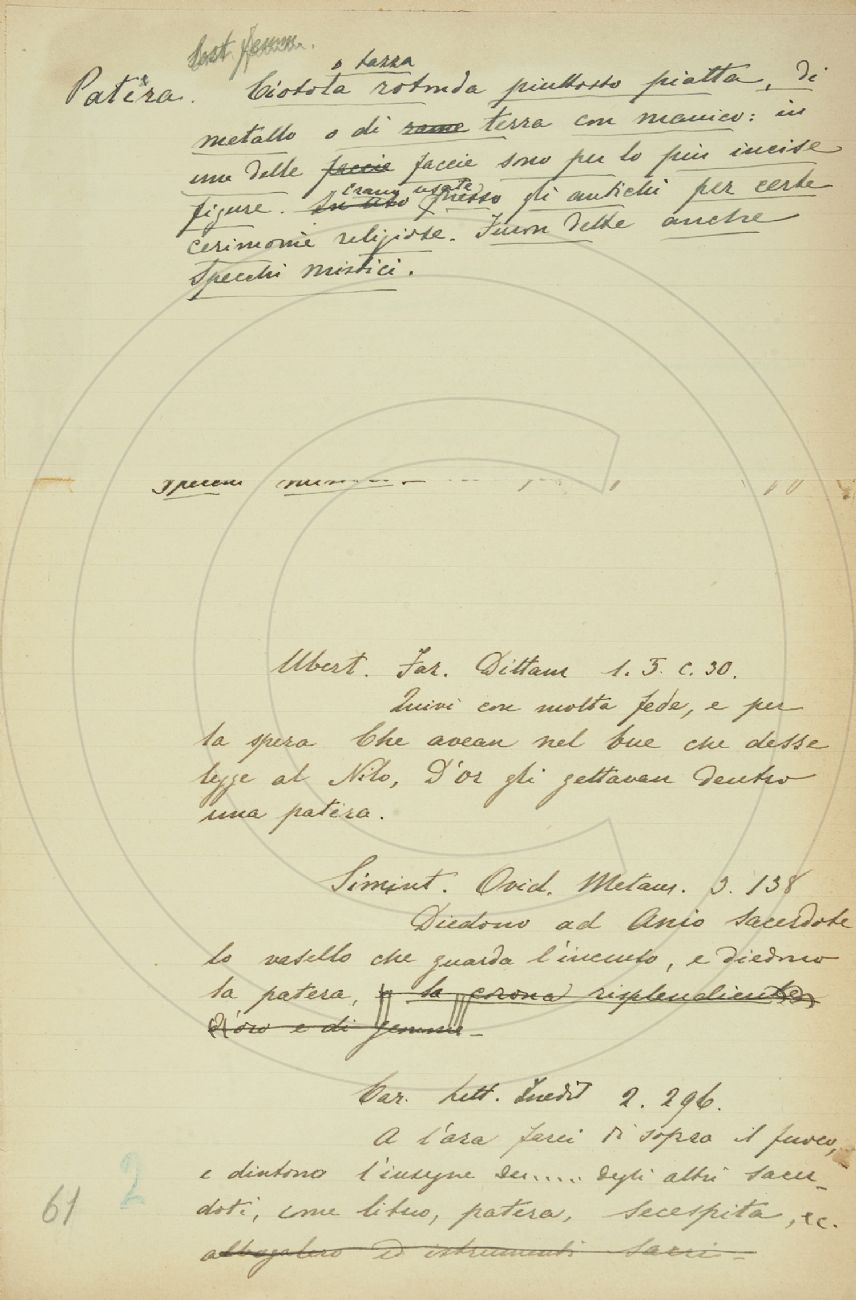 Sost. femm.
o tazza
Patèra. Ciotola rotonda piuttosto piatta, di
metallo o di rame terra con manico: in
una delle faccie faccie sono per lo più incise
erano usate
figure. In uso presso gli antichi per certe
cerimonie religiose. Furon dette anche
Specchi mistici.
Ubert. Faz. Dittam 1. 5. c. 30.
Quivi con molta fede, e per
la spera Che avean nel bue che desse
legge al Nilo, D'or gli gettavan dentro
una patèra.
Simint. Ovid. Metam. 3. 138
Diedono ad Anio sacerdote
lo vasello che guarda l'incenso, e diedono
la patera, e la corona risplendiente
d'oro e di gemme.
Car. Lett. Inedit 2. 296.
A l'ara farei di sopra il fuoco,
e dintorno l'insegne de..... degli altri sacer-
doti, come lituo, patera, secespita, ec.
albogalero ed istrumenti sacri
61 2